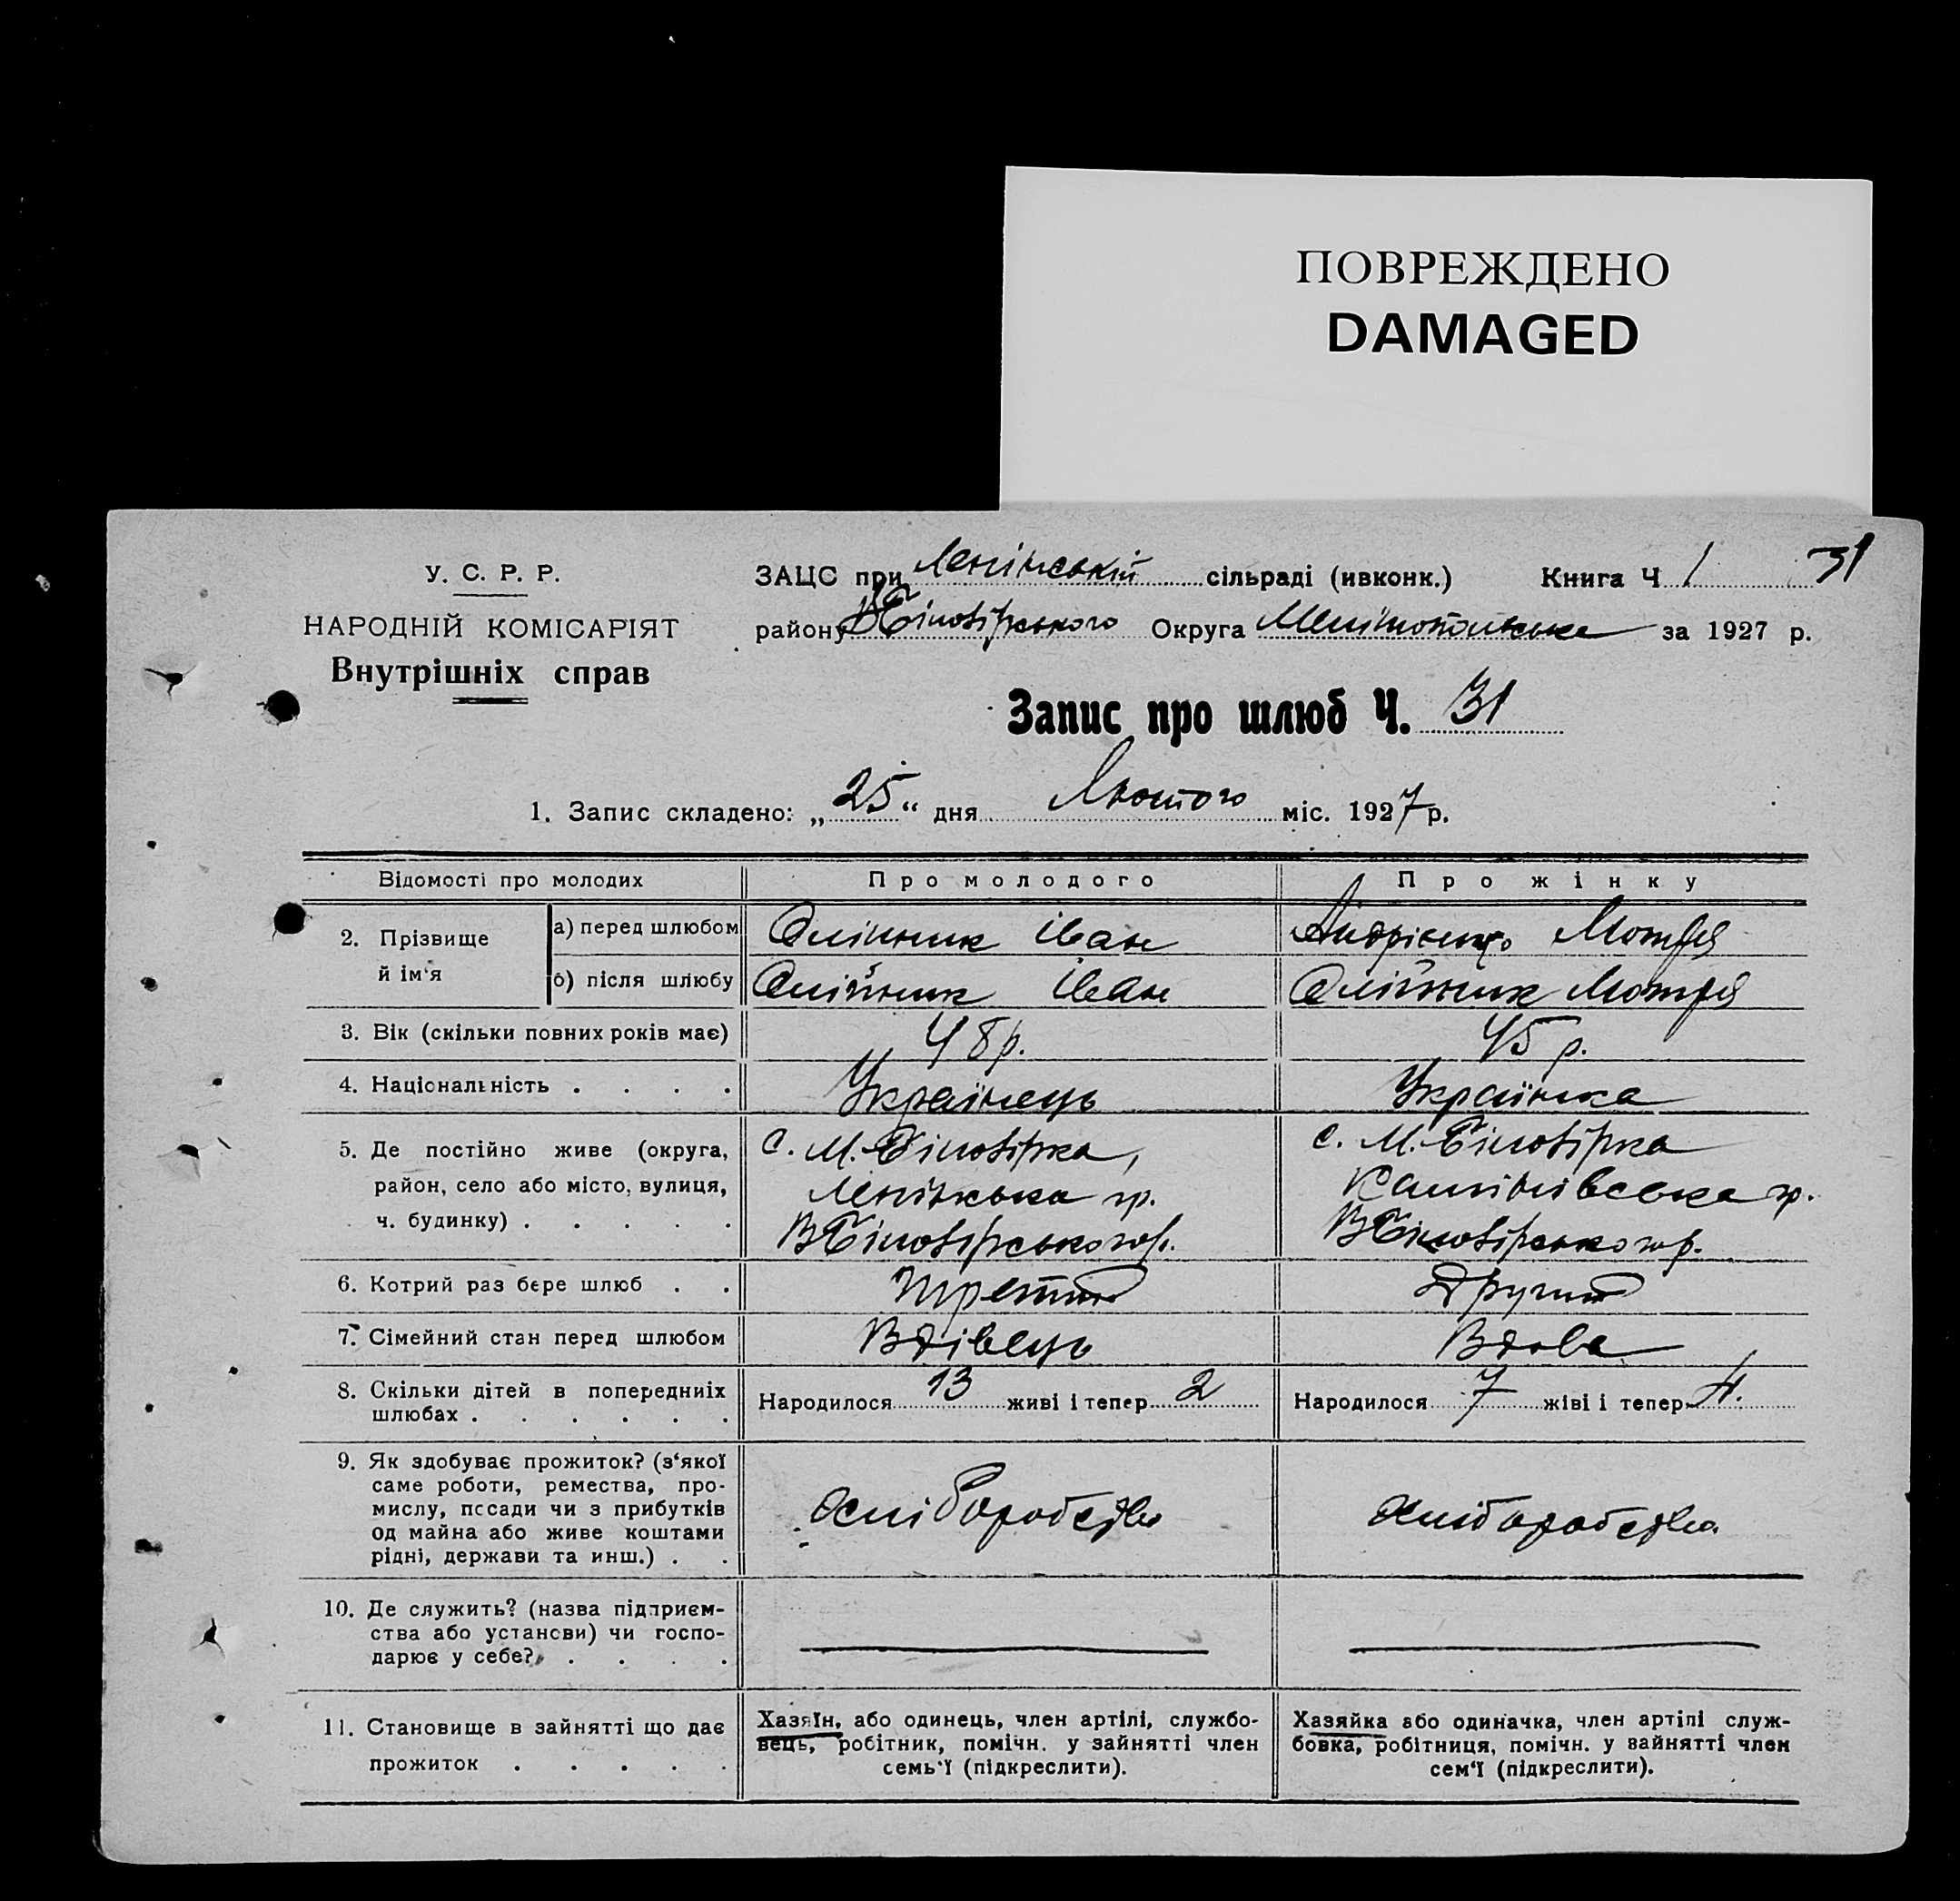 ПОВРЕЖДЕНО
DAMAGED
У. С. Р. Р.
НАРОДНІЙ КОМІСАРІЯТ
Внутрішніх справ
ЗАЦС при Ленінській сільраді (ивконк.) Книга Ч 1 31
району ВБілозірського Округа Мелітопольська за 1927 р.
Запис про шлюб Ч. 31
1. Запис складено: „25“ дня Лютого міс. 1927 р.
Відомості про молодих Про молодого Про жінку
2. Прізвище й ім‘я
а) перед шлюбом Олійник Іван Мотря
б) після шлюбу Олійник Іван Олійник Мотря
3. Вік (скільки повних років має) 48 р. 45 р.
4. Національність . . . . Українець Українка
5. Де постійно живе (округа,
район, село або місто, вулиця,
ч. будинку) . . . . .
с. М. Білозірка,
Ленінська гр.
ВБілозірського р.
с. М. Білозірка
Калінінівська гр.
ВБілозірського р.
6. Котрий раз бере шлюб . . Третій Другий
7. Сімейний стан перед шлюбом Вдівець Вдова
8. Скільки дітей в попередниіх
шлюбах . . . . . .
Народилося 13 живі і тепер 2
Народилося 7 жіві і тепер 4.
9. Як здобуває прожиток? (з‘якої
саме роботи, ремества, про-
мислу, посади чи з прибутків
од майна або живе коштами
рідні, держави та инш.) . .
Хліборобство
Хліборобство
10. Де служить? (назва підприєм-
ства або установи) чи госпо-
дарює у себе? . . . .
11. Становище в зайнятті що дає
прожиток . . . . .
Хазяїн, або одинець, член артілі, службо-
вець, робітник, помічн. у зайнятті член
семь‘ї (підкреслити).
Хазяйка або одиначка, член артілі служ-
бовка, робітниця, помічн. у вайнятті член
сем‘ї (підкреслити).